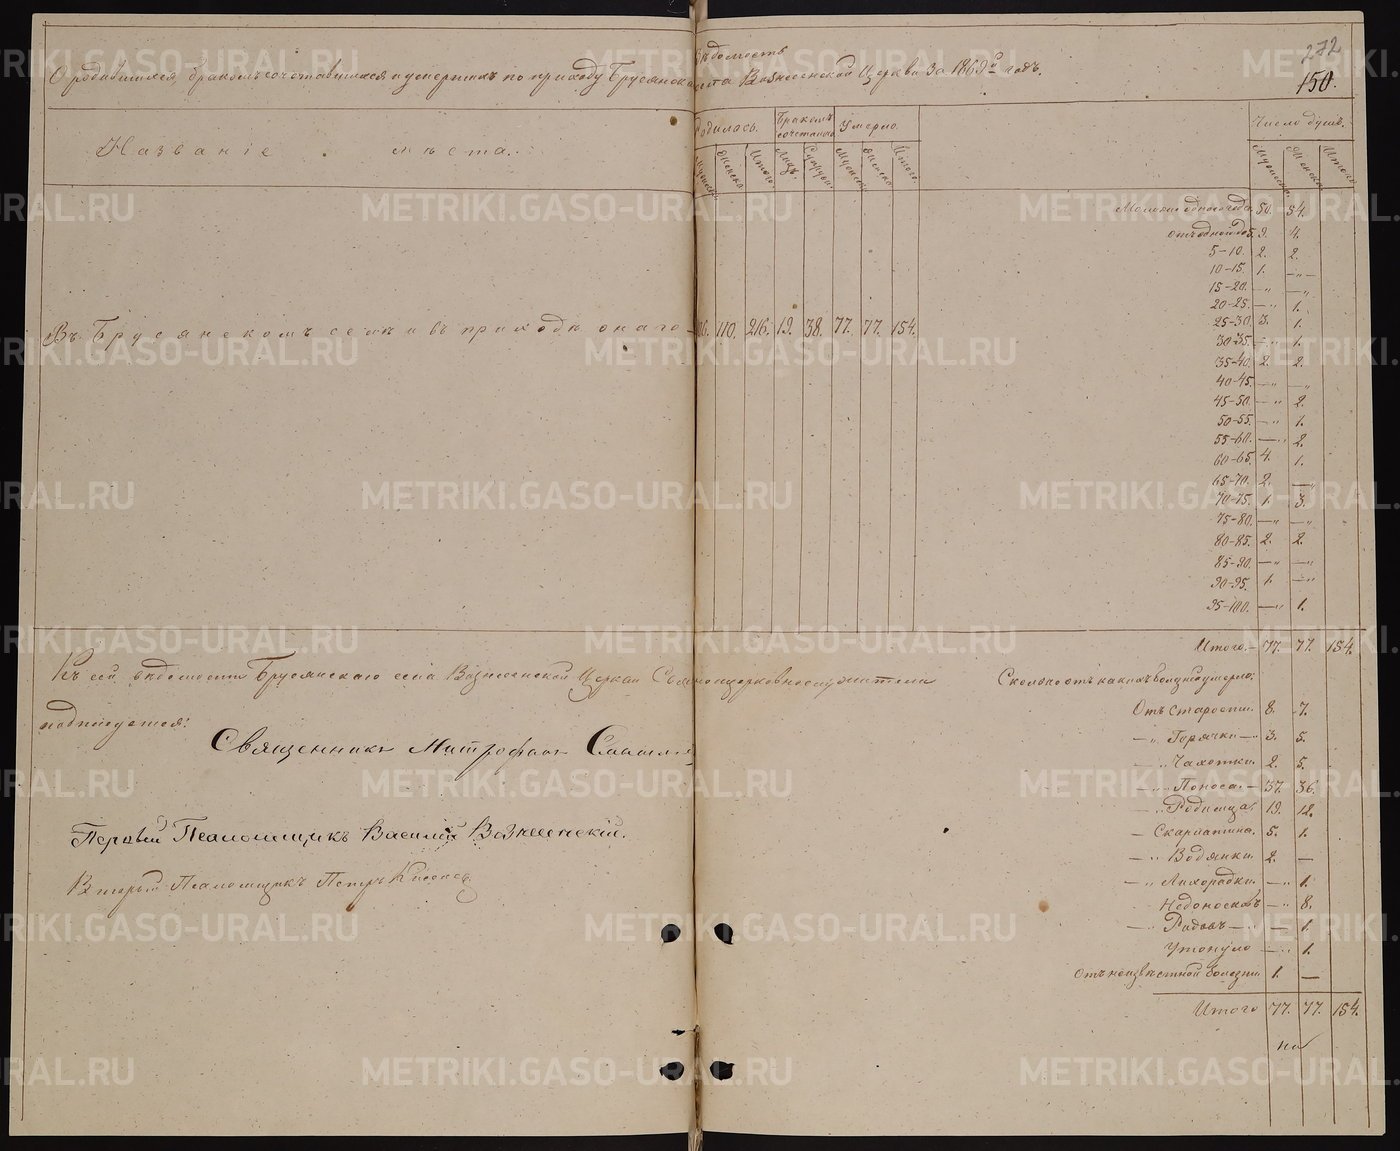 272
150.
Вѣдомость
О родившихся, бракомъ сочетавшихся и умершихъ по приходу Брусянскаго села Вознесенской Церкви за 1869й годъ.
Названіе мѣста.
Родилось. Бракомъ сочеталось Умерло. Число душъ.
Мужеска Женска Итого. Лицъ. Супруж. Мужеска Женска Итого. Мужеска Женска Итого
Въ Брусянскомъ селѣ и въ приходѣ онаго 106. 110. 216. 19. 38. 77. 77. 154.
Моложе одного года. 50. 54.
отъ одного до 5. 9. 4.
5-10. 2. 2.
10-15. 1. —„—
15-20. —„ —„
20-25. —„ 1.
25-30. 3. 1.
30-35. —„ 1.
35-40. 2. 2.
40-45. —„ —„
45-50. —„ 2.
50-55. —„ 1.
55-60. —„ 2.
60-65. 4. 1.
65-70. 2. —„
70-75. 1. 3.
75-80. —„ —„
80-85. 2. 2.
85-90. —„ —„
90-95. 1. —„
95-100. —„ 1.
Итого. 77. 77. 154.
Къ сей вѣдомости Брусянскаго села Вознесенской Церкви Священноцерковнослужители
подписуется:
Священникъ Митрофанъ
Первый Псаломщикъ Василій Вознесенскій.
Вторый Псаломщикъ Петръ
Сколько отъ какихъ болѣзней умерло:
Отъ Старости. 8. 7.
—„ Горячки —„ 3. 5.
—„ Чахотки. 2. 5.
—„ Поноса. 37. 36.
—„ Родимца. 19. 12.
— Скарлатина. 5. 1.
—„ Водянки. 2. —
—„ Лихорадки. —„ 1.
Недоносковъ —„ 8.
—„ Родовъ —„ — 1.
Утонуло —„ 1.
Отъ неизвѣстной болезни 1. —
Итого 77. 77. 154.
на
METRIKI.GASO-URAL.RU